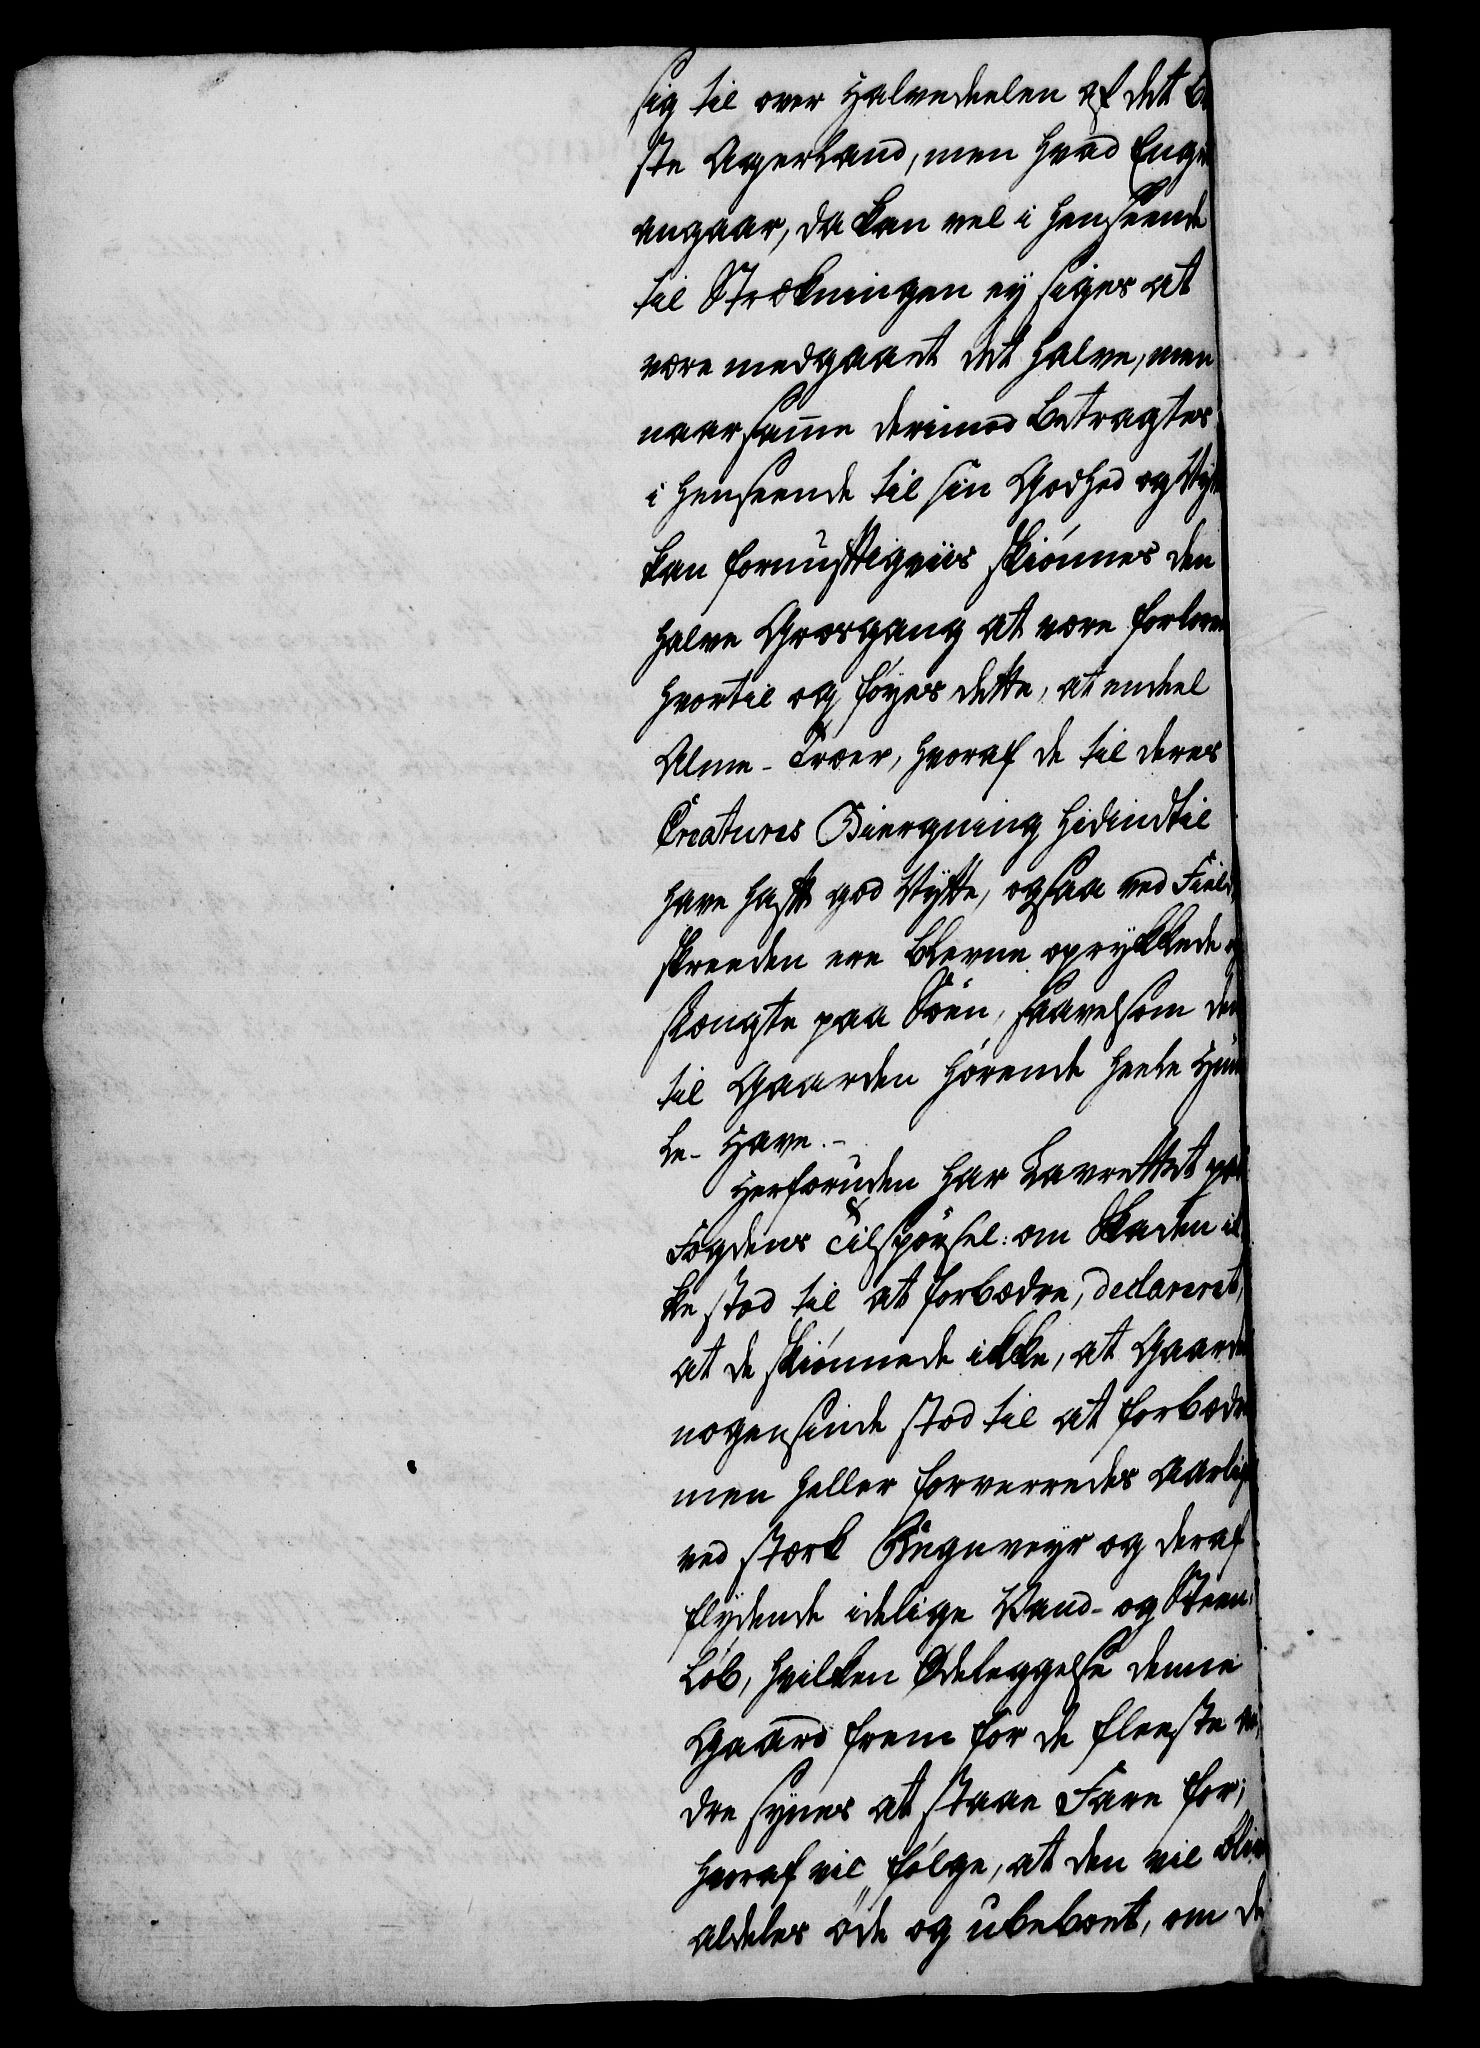 sig til over Halvedeelen af det Be
ste Agerland, men hvad Enge
angaar, da kan vel i henseende
til Strækningen ey siges at
være medgaaet det halve, men
naar samme derimod Betragtes
i henseende til sin Godhed og Nytte
kan fornuftigviis skiønnes den
halve Græsgang at være forloren
hvortil og føyes dette, at endeel
Alme-Træer, hvoraf de til deres
Creatures Biergning hidindtil
have haft god Nytte, ogsaa ved Field
skreeden ere blevne oprykkede og
slængte paa Søen, saavelsom den
til Gaarden hørende heele Hum
le-Have.-
Herforuden har Lavrettet paa
Fogdens Tilspørsel: om Skaden ik
ke stod til at forbædre, declareret,
at de skiønnede ikke, at Gaarden
nogensinde stod til at forbædre
men heller forverredes aarlig
ved stærk Regnveyr og deraf
flydende idelige Vand- og Steen-
Løb, hvilken Ødeleggelse denne
Gaard frem for de fleeste an
dre synes at staae Fare for;
hvoraf vil følge, at den vil blive
aldeles øde og ubeboet, om de